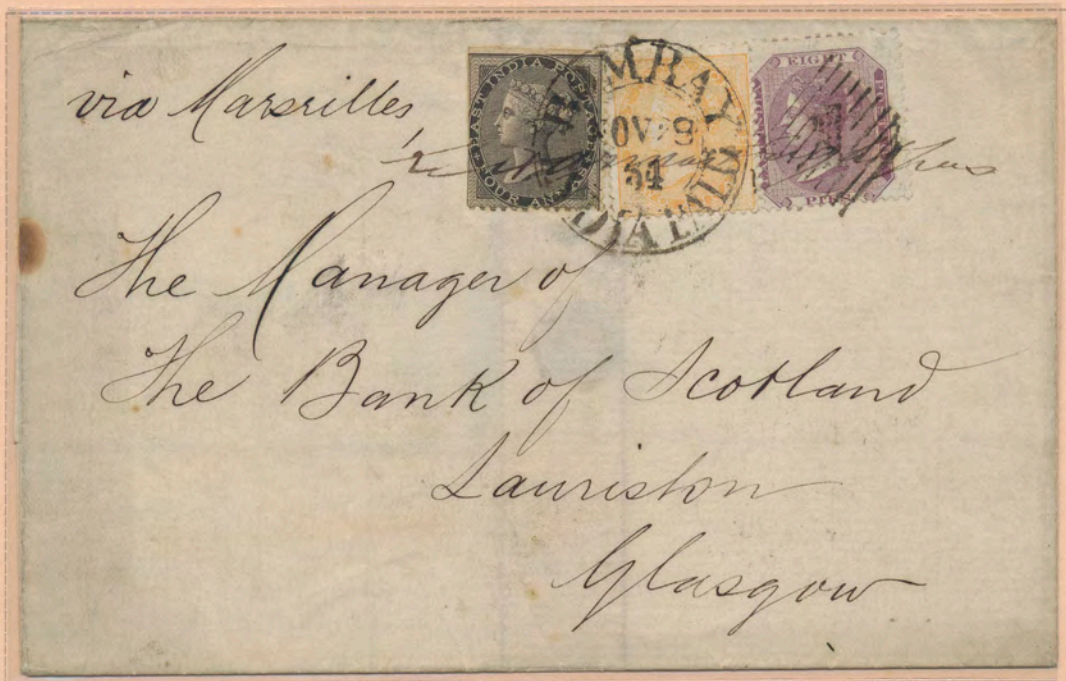 via Marseilles
EAST INDIA POSTAGE
FOUR ANNAS
EIGHT
PIES
The Manager of
The Bank of Scotland
Lauriston
Glasgow